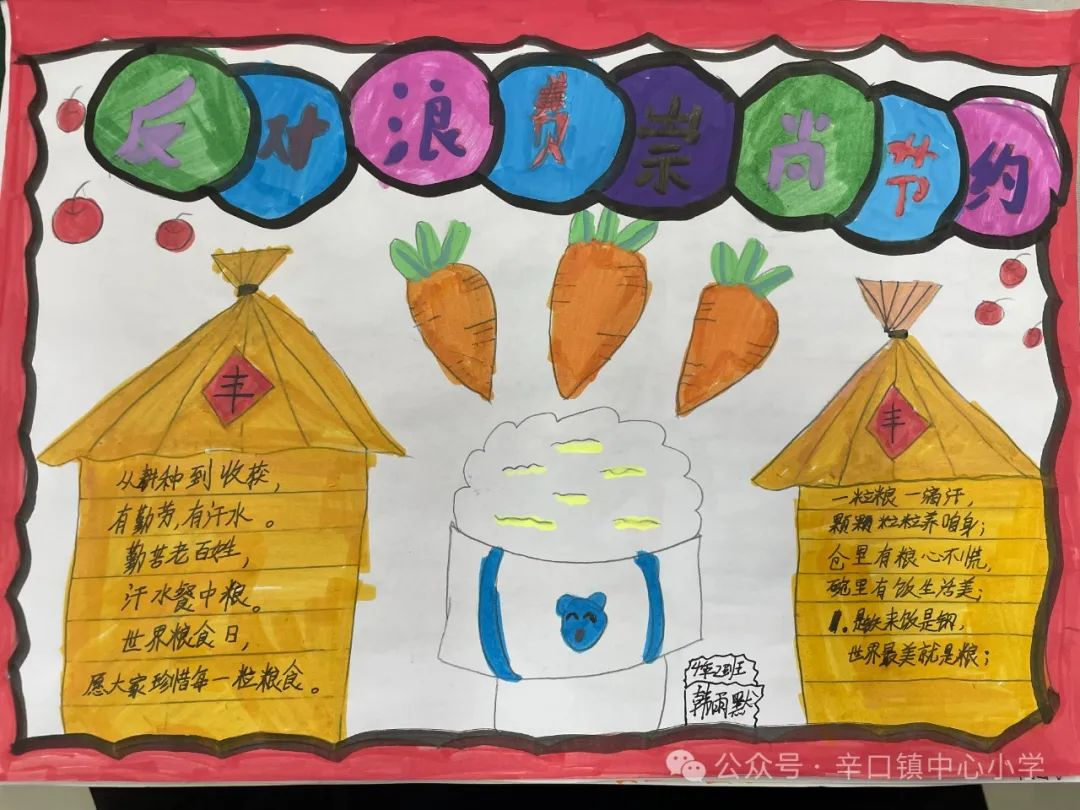 反对浪费崇尚节约
丰
从耕种到收获,
有勤劳,有汗水。
勤苦老百姓,
汗水餐中粮。
世界粮食日,
愿大家珍惜每一粒粮食。
丰
一粒粮 一滴汗,
颗颗粒粒养咱身;
仓里有粮心不慌,
碗里有饭生活美;
来饭是钢,
世界最美就是粮;
4年2班
韩雨默
公众号·辛口镇中心小学